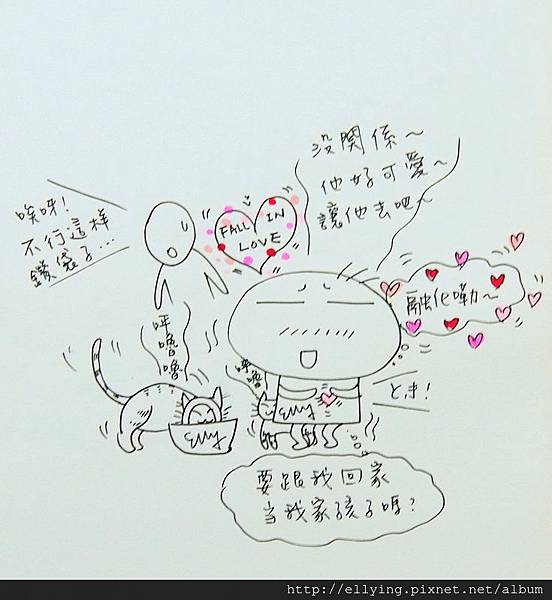 沒關係～
他好可愛～
讓他去吧～
唉呀!
不行這樣
鑽袋子...
FALL IN
LOVE
融化嘞～
呼嚕嚕
呼嚕
Elly
Elly
要跟我回家
當我家孩子嗎?
http://ellying.pixnet.net/album